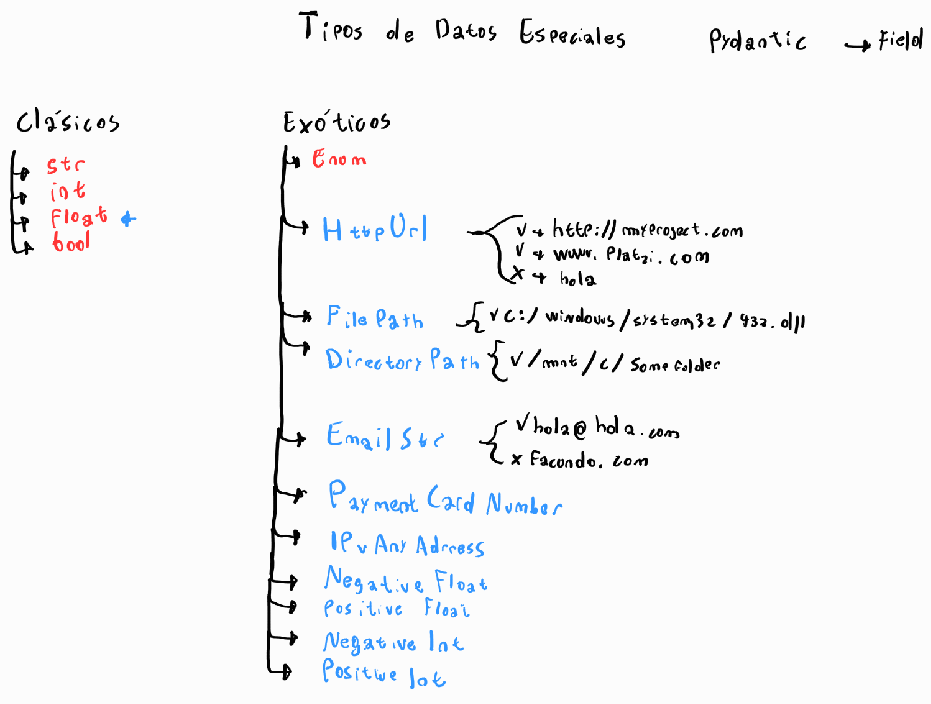 Tipos de Datos Especiales Pydantic → Field
Clásicos
str
int
Float +
bool
Exóticos
Enom
HttpUrl
v → http://myproject.com
v → www.Platzi.com
x → hola
File Path
v c:/windows/system32/432.dll
Directory Path
v/mnt/c/Some folder
Email Str
v hola@hola.com
x Facundo.com
Payment Card Number
IPv Any Adrress
Negative Float
Positive Float
Negative Int
Positive Int